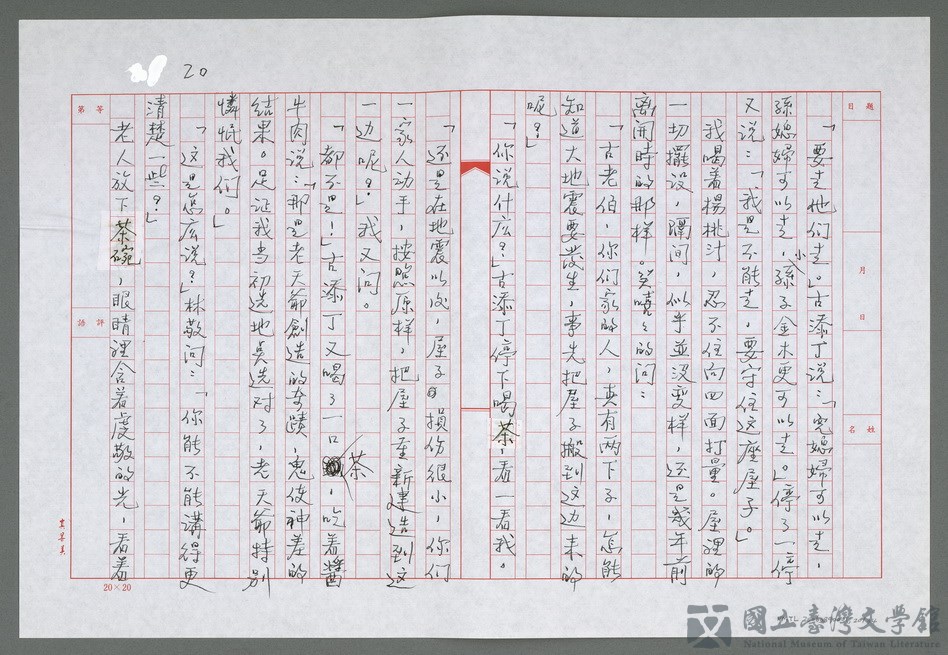 20
題目
月 日
姓名
「要走他們走。」古添丁說：「兒媳婦可以走，
孫媳婦可以走，小孫子金木更可以走。」停了一停
又说：「我是不能走，要守住这座屋子。」
我喝着楊桃汁，忍不住向四面打量。屋裡的
一切擺設，隔间，似乎並没变样，还是幾年前
离開時的那样。笑嘻々的问：
「古老伯，你们家的人，真有两下子，怎能
知道大地震要發生，事先把屋子搬到这边来的
呢？」
「你说什庅？」古添丁停下喝茶，看一看我。
「还是在地震以后，屋子損伤很小，你们
一家人动手，按照原样，把屋子重新建造到这
一边呢？」我又问。
「都不是！」古添丁又喝了一口茶，吃着醬
牛肉说：「那是老天爺創造的奇蹟，鬼使神差的
结果。足证我当初选地真选对了，老天爺特别
憐恤我们。」
「这是怎庅说？」林敬问：「你能不能講得更
清楚一些？」
老人放下茶碗，眼睛裡含着虔敬的光，看着
等第
評語
20×20
國立臺灣文學館
National Museum of Taiwan Literature